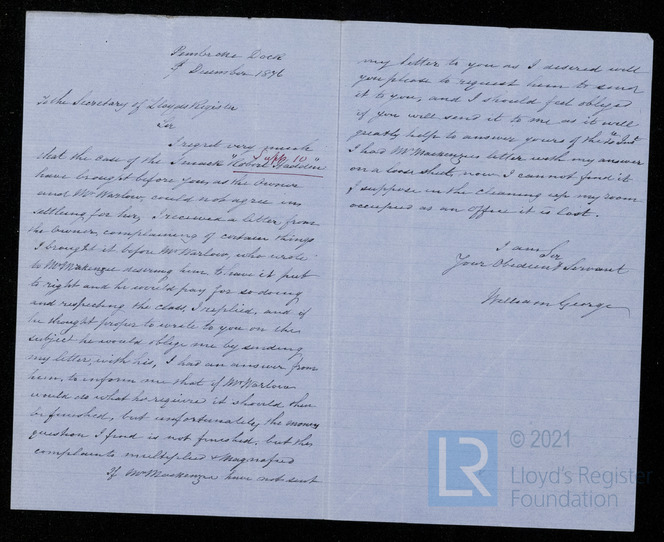 Pembroke Dock
9 December 1876
To the Secretary of Lloyds Register
Sir
I regret very much
that the case of the Smack "Robert Gadden"
have brought before you, as the Owner
and Mr Warlow, could not agree in
settling for her, I received a letter from
the owner, complaining of certain things
I brought it before Mr Warlow, who wrote
to Mr Mackenzie desiring him to have it put
to right and he would pay for so doing
and respecting the class, I replied, and if
he thought proper to write to you on the
subject he would oblige me by sending
my letter, with his, I had an answer from
him, to inform me that if Mr Warlow
would do what he require it should then
be finished, but unfortunately the money
question I find is not finished, but the
complaints multiplied & Magnified
If Mr Mackenzie have not sent
my letter to you as I desired will
you please to request him to send
it to you, and I should feel obliged
if you will send it to me as it will
greatly help to answer yours of the Inst
I had Mr Mackenzies letter with my answer
on a loose sheet, now I cannot find it
I suppose in the cleaning up my room
occupied as an office it is lost.
I am Sir
Your Obedient Servant
William George
LR © 2021
Lloyd's Register
Foundation